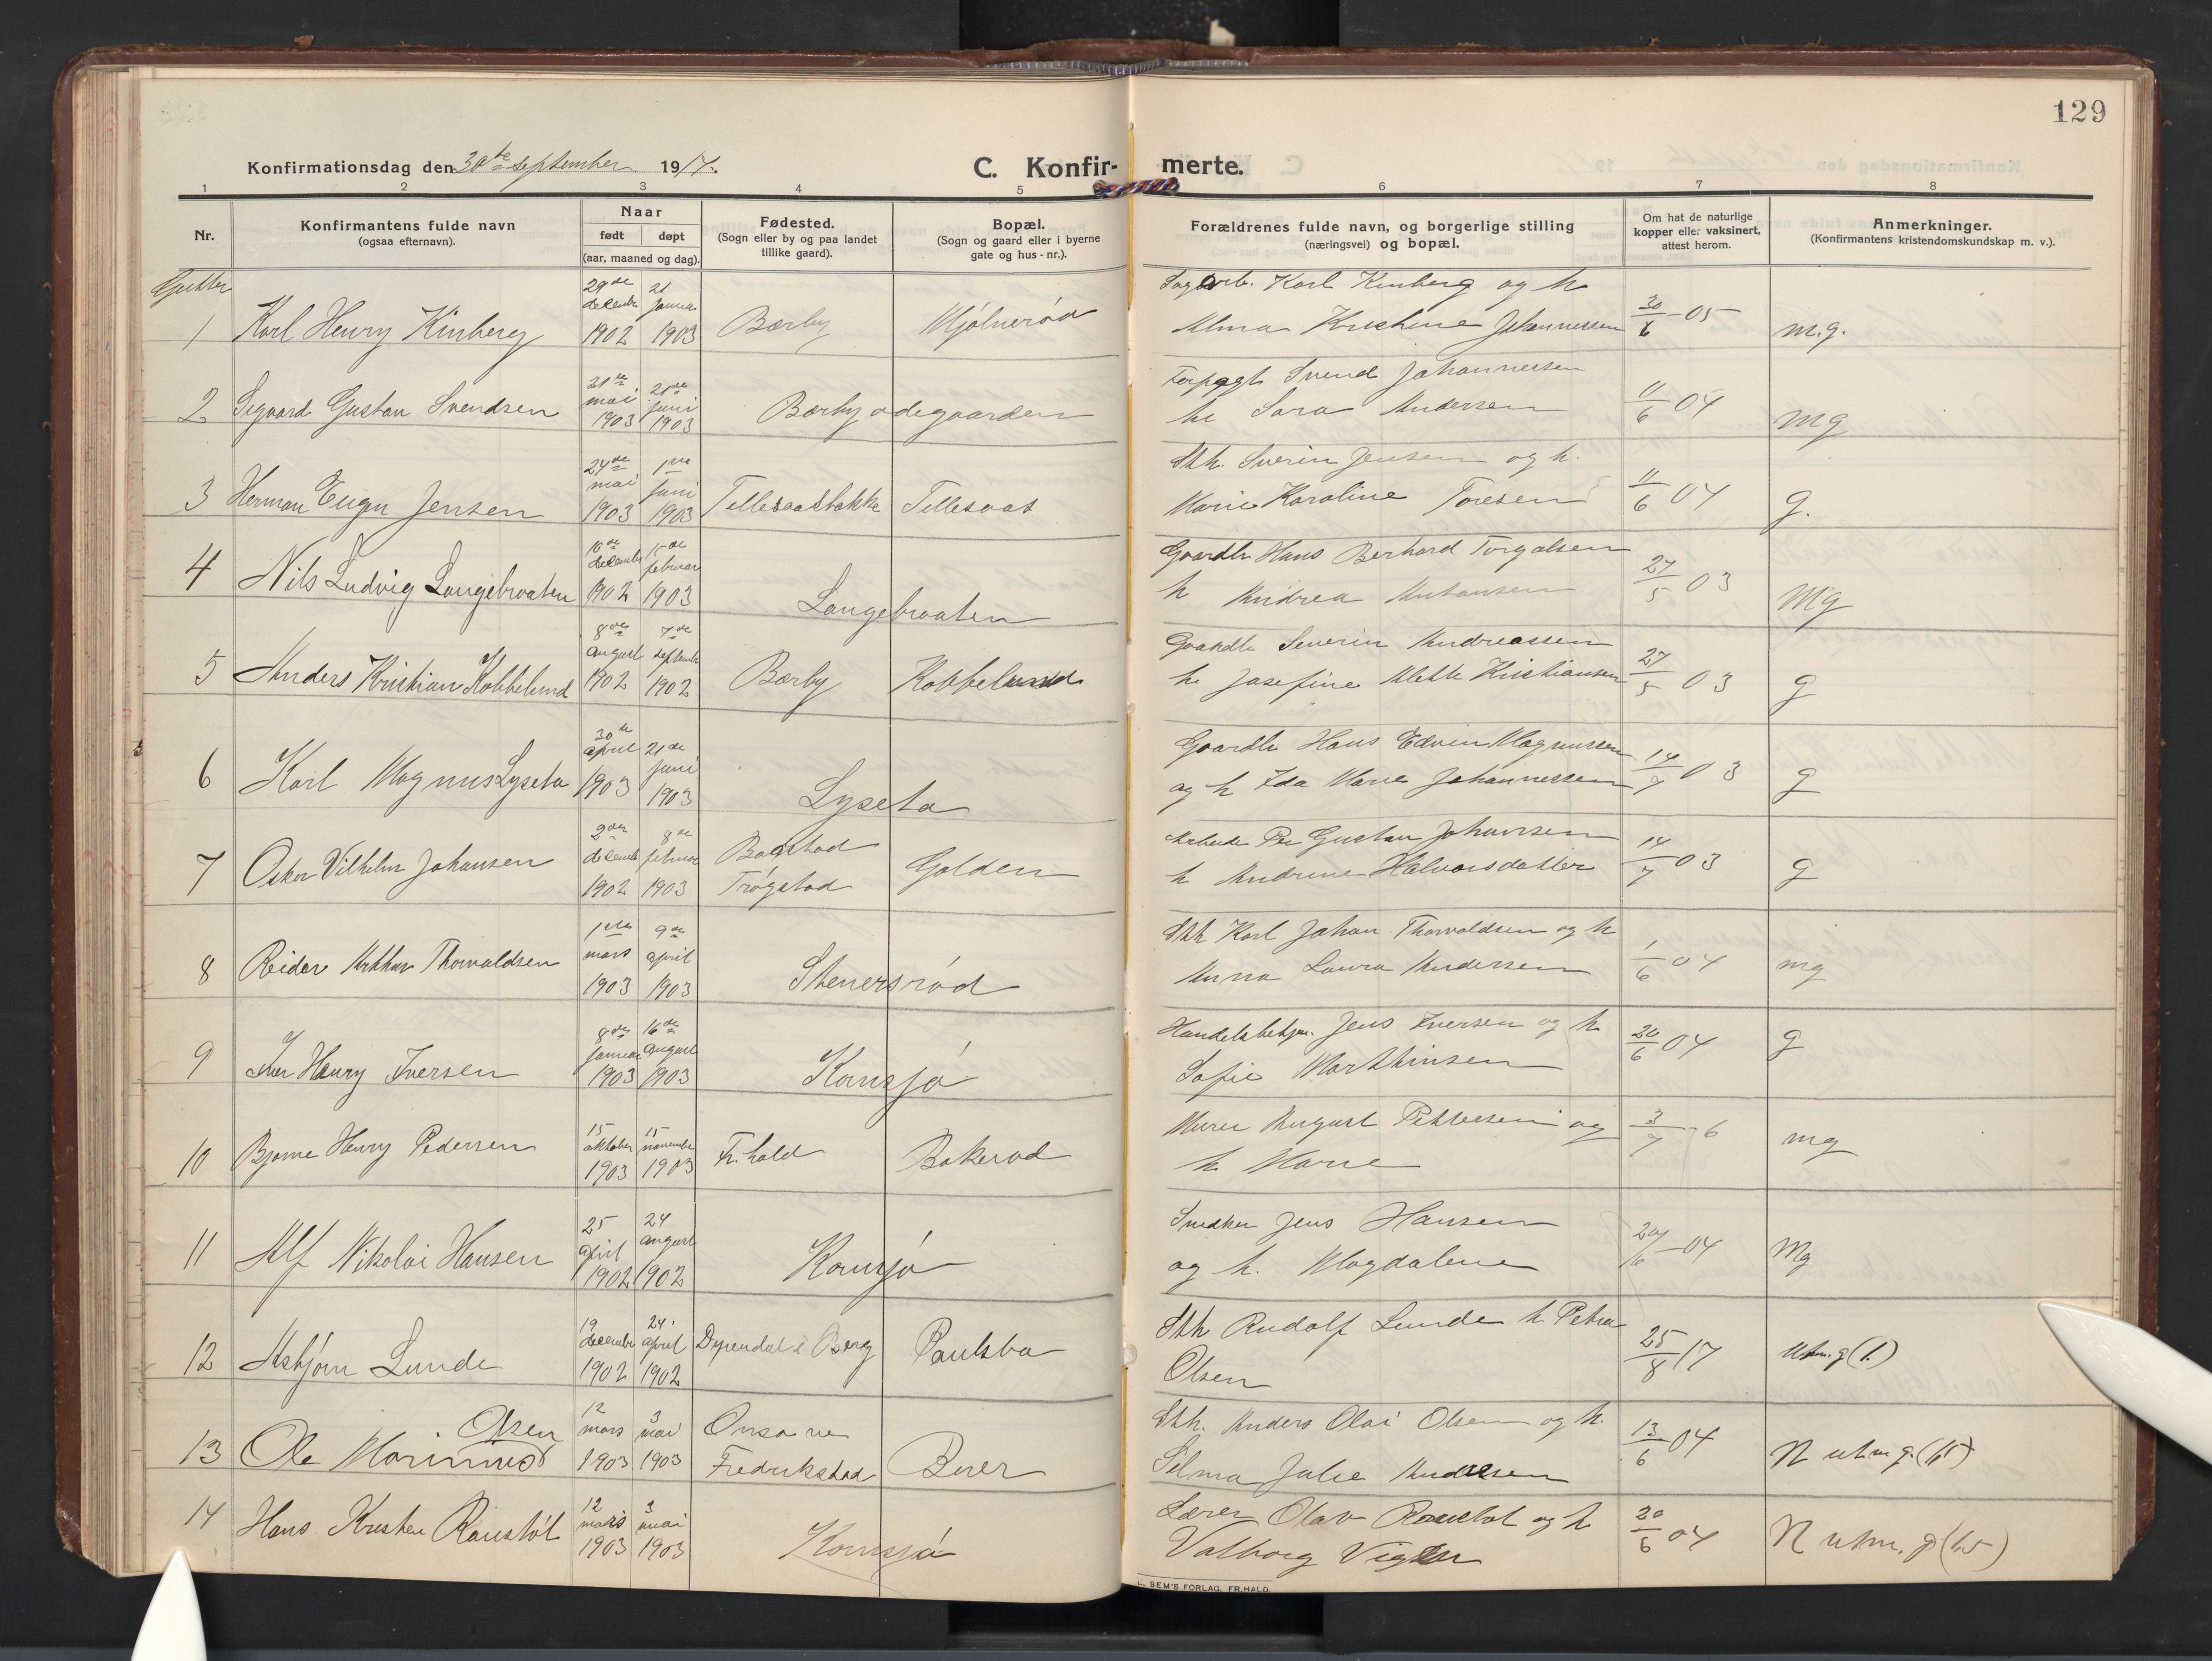 129
Konfirmationsdag den 30te september 1917.
C. Konfirmerte.
1 2 3 4 5 6 7 8
Nr.
Konfirmantens fulde navn
(ogsaa efternavn).
Naar
født døpt
(aar, maaned og dag).
Fødested.
(Sogn eller by og paa landet
tillike gaard).
Bopæl.
(Sogn og gaard eller i byerne
gate og hus-nr.).
Forældrenes fulde navn, og borgerlige stilling
(næringsvei) og bopæl.
Om hat de naturlige
kopper eller vaksinert,
attest herom.
Anmerkninger.
(Konfirmantens kristendomskundskap m. v.).
Gutter
1 Karl Henry Kinberg
29de decembr 1902
21 januar 1903
Bærby
Mjølnerød
Sagarb. Karl Kinberg og h
Alma Kristine Johannessen
30/6-05
m.g.
2 Sigvard Gustav Svendsen
31te mai 1903
21de juni 1903
Bærby ødegaarden
Forpagt Svend Johannessen
h Sara Andersen
11/6 04
mg
3 Herman Eugen Jensen
24de mai 1903
1ste juni 1903
Tillesaasbakke
Tillesaas
Stk. Sverin Jensen og h.
Marie Karoline Toresen
11/6 04
g.
4 Nils Ludvig Langebraaten
10de decembr 1902
februar 1903
Langebraaten
Gaardbr Hans Berhard Torgalsen
h Andrea Antonsen
27/5 03
Mg
5 Anders Kristian Kobbelund
8de august 1902
7de septembr 1902
Bærby
Kobbelund
Gaardbr Severin Andreassen
h Josefine Mette Kristiansen
27/5 03
g
6 Karl Magnus Lyseto
30te april 1903
21de juni 1903
Lyseto
Gaardbr Hans Edvin Magnussen
og h Ida Marie Johannessen
14/7 03
g
7 Oskar Vilhelm Johansen
2den decembr 1902
8de februar 1903
Båstad
Trøgstad
Golden
Arbeider Per Gustav Johansen
h Andrine Halvorsdatter
14/7 03
g
8 Reidar Arthur Thorvaldsen
1ste mars 1903
9de april 1903
Stenersrød
Stk Karl Johan Thorvaldsen og h
Anna Laura Andersen
1/6 04
mg
9 Iver Henry Iversen
8de januar 1903
16de august 1903
Kornsjø
Handelsbetjen. Jens Iversen og h
Sofie Marthinsen
20/6 04
g
10 Bjarne Henry Pedersen
15 oktober 1903
15 novembr 1903
Fr.hald
Bakerød
Murer August Pettersen og
h Marie
3/7-6
mg
11 Alf Nikolai Hansen
25 april 1902
24 august 1902
Kornsjø
Snedker Jens Hansen
og h. Magdalene
20/6-04
Mg
12 Asbjørn Lunde
19 decembr 1902
24 april 1902
Dyrendal i Berg
Paulsbo
Stk Rudolf Lunde h Petra
Olsen
25/8 17
utm.g(1.)
13 Ole Marinus Olsen
12 mars 1903
3 mai 1903
Onsø ve
Fredrikstad
Buer
Stk. Anders Olai Olsen og h.
Selma Julie Andresen
13/6 04
N utm g.(1,5)
14 Hans Kristen Ranstøl
12 mars 1903
3 mai 1903
Kornsjø
Lærer Olav Ranstøl og h
Valborg Vigen
20/6 04
N utm. g(1.5)
E. SEM'S FORLAG, FR.HALD.